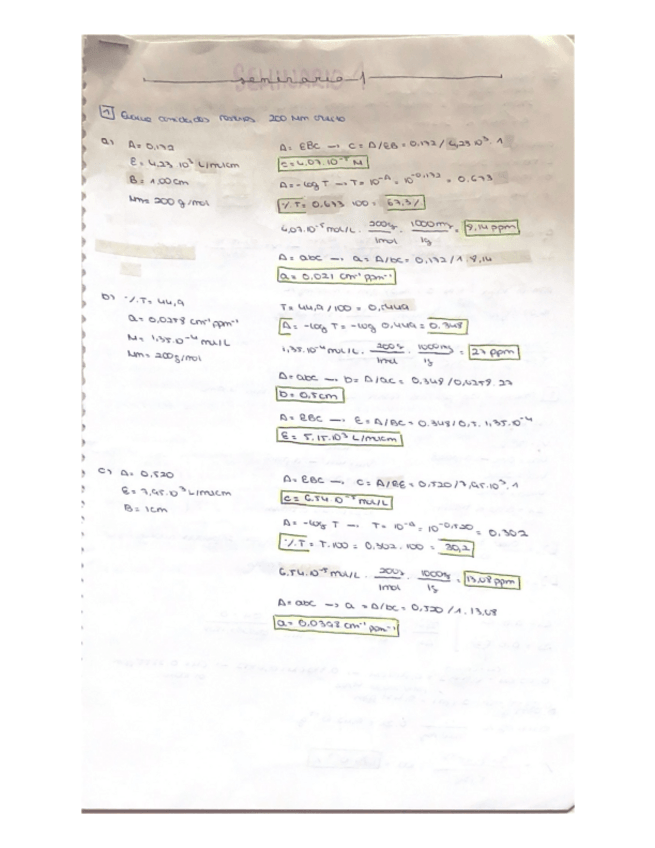 seminario 1
1 200
a) A= 0,172
ε= 4,23·10³ L/molcm
B= 1,00cm
Mm= 200 g/mol
A= εBC → C= A/εB = 0,172/4,23·10³·1
C=4,07·10⁻⁵ M
A=-log T → T= 10⁻ᴬ = 10⁻⁰'¹⁷² = 0,673
%T= 0,673·100 = 67,3%
4,07·10⁻⁵ mol/L · 200g/1mol · 1000mg/1g = 8,14 ppm
A= abc → a= A/bc = 0,172/1·8,14
a= 0,021 cm⁻¹ppm⁻¹
b) %T= 44,9
a= 0,0258 cm⁻¹ppm⁻¹
M= 1,35·10⁻⁴ mol/L
Mm= 200g/mol
T= 44,9/100 = 0,449
A= -log T= -log 0,449 = 0,348
1,35·10⁻⁴ mol/L · 200g/1mol · 1000mg/1g = 27 ppm
A=abc → b= A/ac = 0,348/0,0258·27
b= 0,5cm
A= εBC → ε= A/BC = 0,348/0,5·1,35·10⁻⁴
ε= 5,15·10³ L/molcm
c) A= 0,520
ε= 7,95·10³ L/molcm
B= 1cm
A= εBC → C= A/Bε = 0,520/7,95·10³·1
C= 6,54·10⁻⁵ mol/L
A= -log T → T= 10⁻ᴬ = 10⁻⁰'⁵²⁰ = 0,302
%T= T·100 = 0,302·100 = 30,2
6,54·10⁻⁵ mol/L · 200g/1mol · 1000mg/1g = 13,08 ppm
A= abc → a = A/bc = 0,520/1·13,08
a= 0,0398 cm⁻¹ppm⁻¹